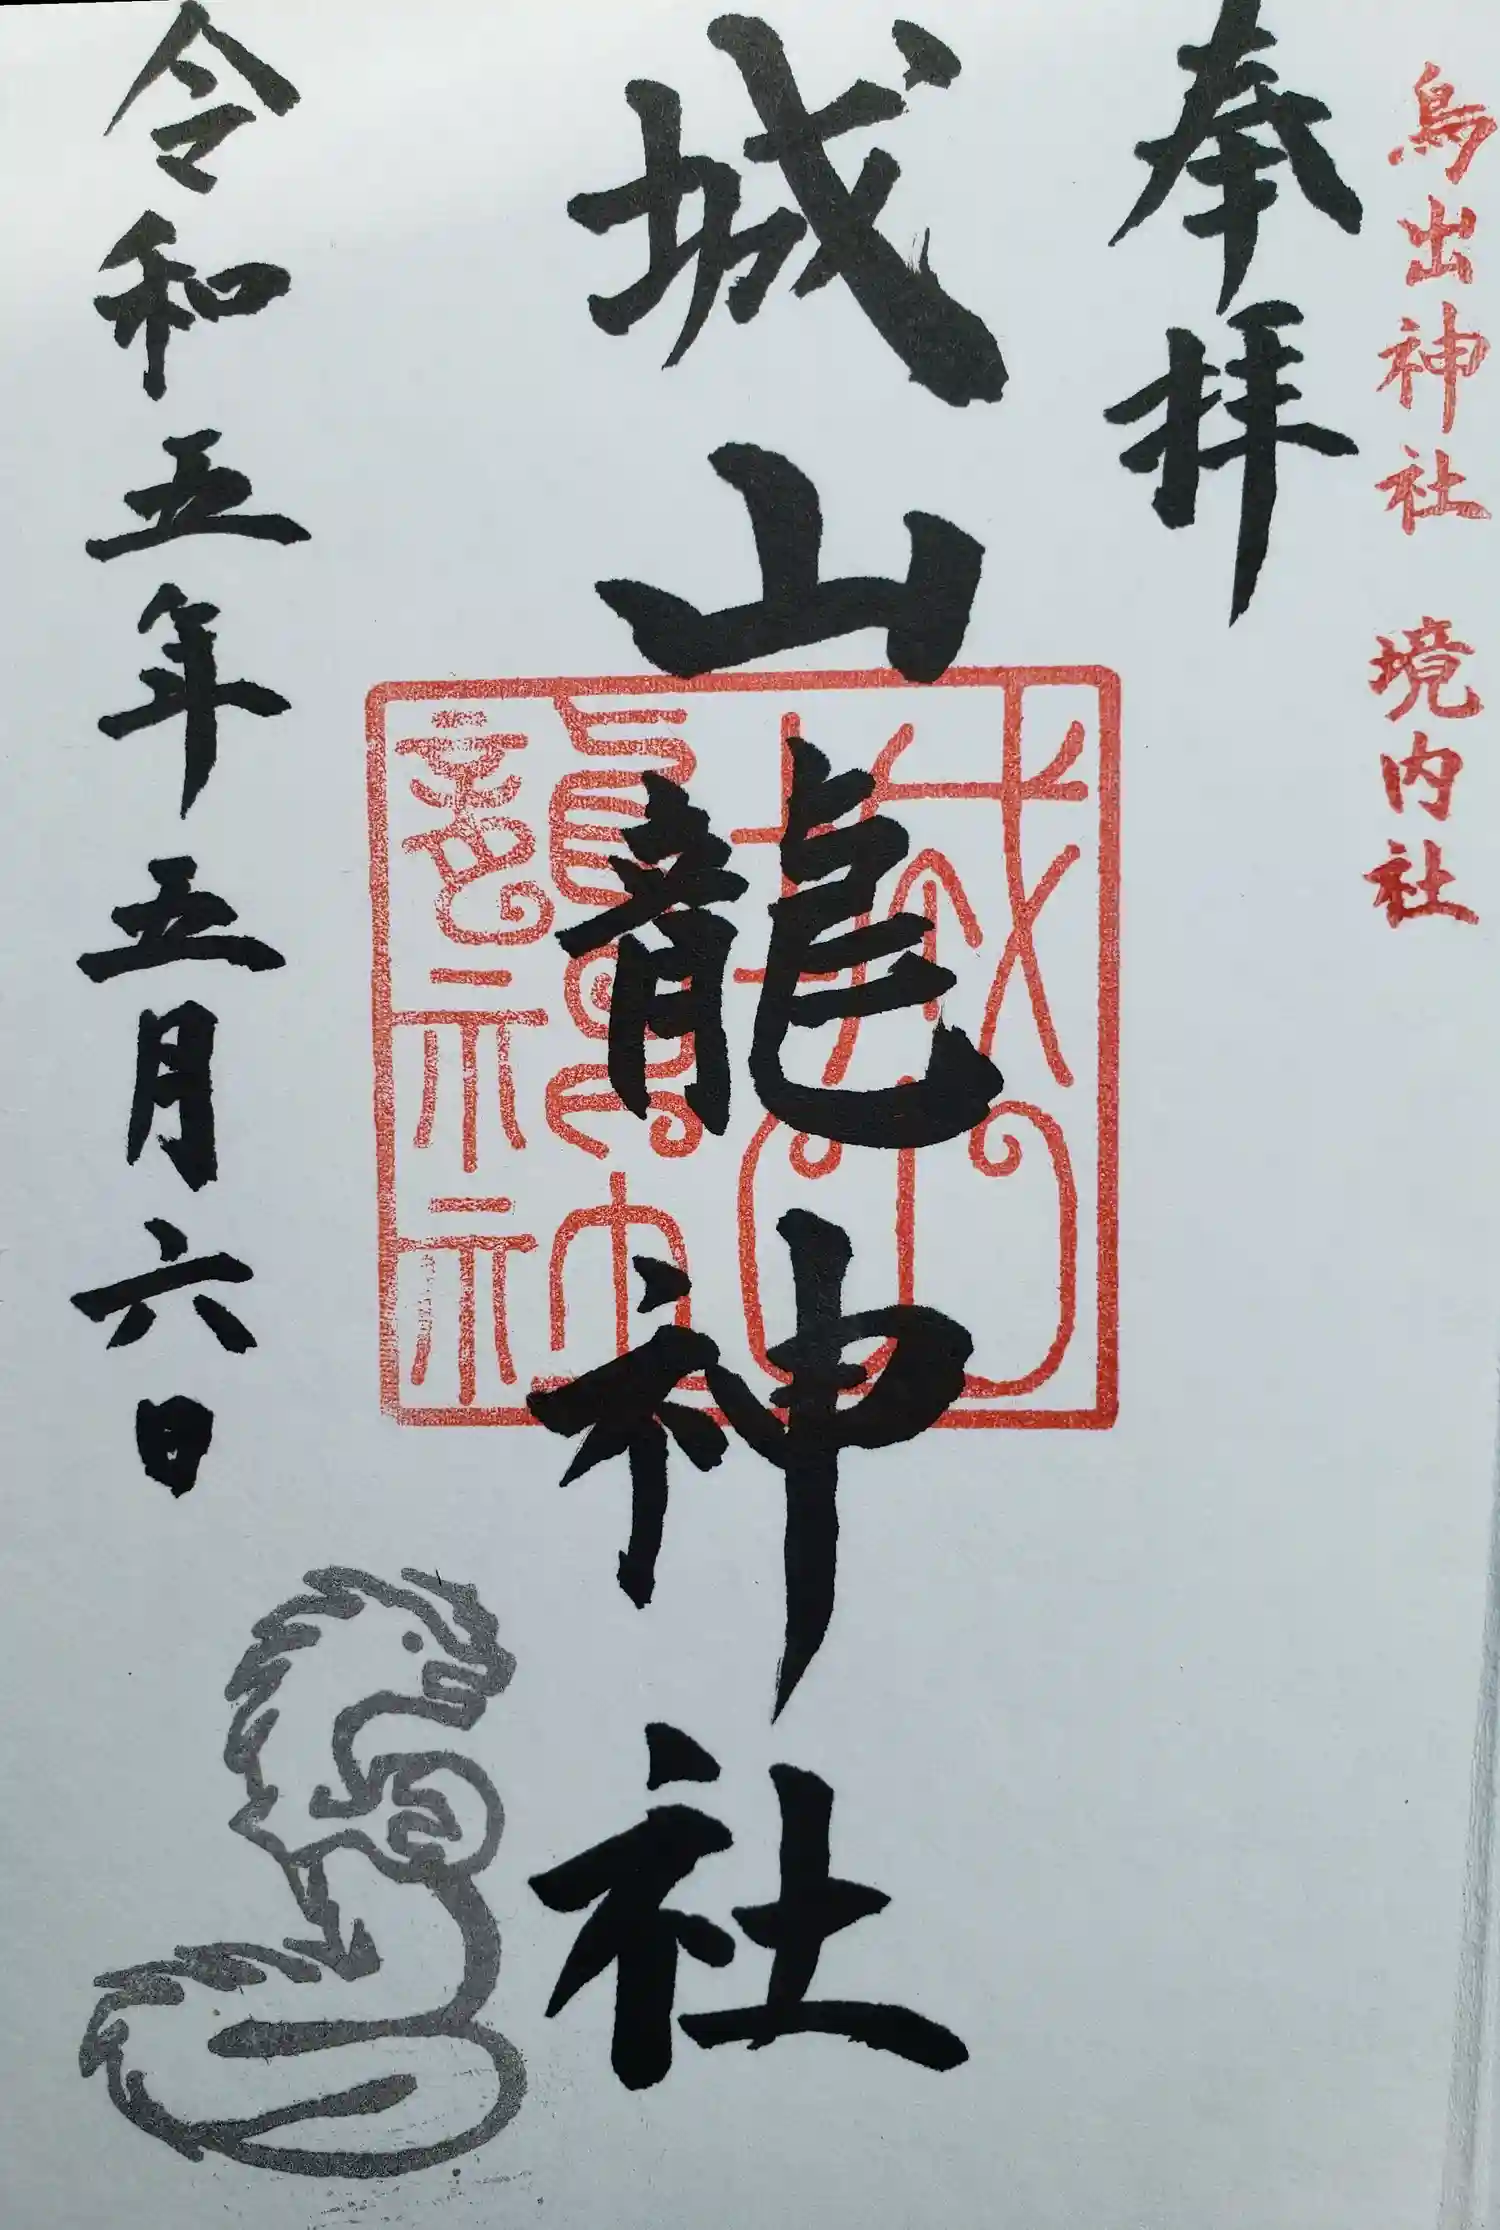 鳥出神社 境内社
奉拝
城山龍神社
城山
龍神社
令和五年五月六日